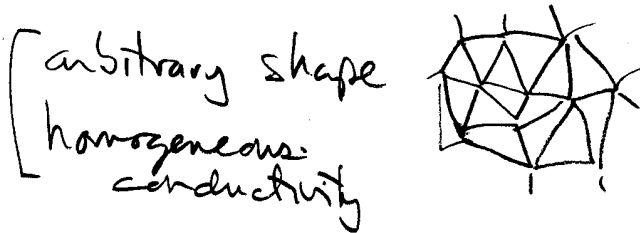 arbitrary shape
homogeneous
conductivity